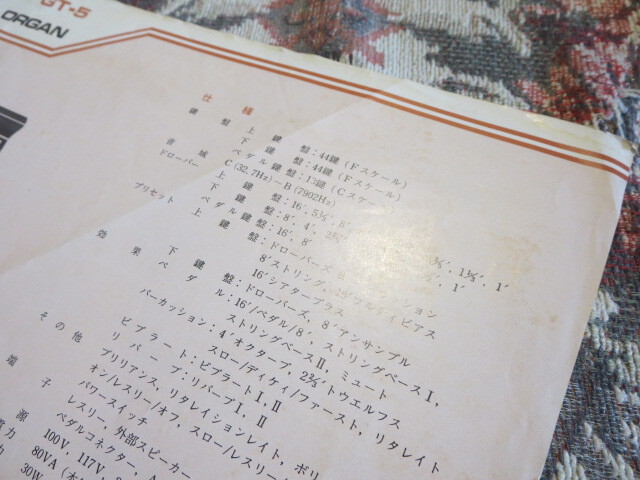 GT-5
ORGAN
仕様
鍵盤 上鍵盤：44鍵（Fスケール）
下鍵盤：44鍵（Fスケール）
ペダル鍵盤：13鍵（Cスケール）
音域 C（32.7Hz）－B（7902Hz）
ドローバー 上鍵盤：16′, 5⅓′, 8′ 1⅓′, 1′
下鍵盤：8′, 4′, 2⅔′ 1′
ペダル鍵盤：16′, 8′
プリセット 上鍵盤：ドローバーズ
8′ストリング
16′シアターブラス
下鍵盤：ドローバーズ, 8′アンサンブル
ペダル：16′/ペダル/8′, ストリングベースI,
ストリングベースII, ミュート
効果 パーカッション：4′オクターブ, 2⅔′トウエルフス
スロー/ディケィ/ファースト, リタレイト
ビブラート：ビブラートI, II
リバーブ：リバーブI, II
その他 ブリリアンス, リタレイションレイト, ボリ
オン/レスリー/オフ, スロー/レスリー/
パワースイッチ
端子 レスリー, 外部スピーカー
ペダルコネクター, A
源 100V, 117V,
力 80VA（本
力 30W